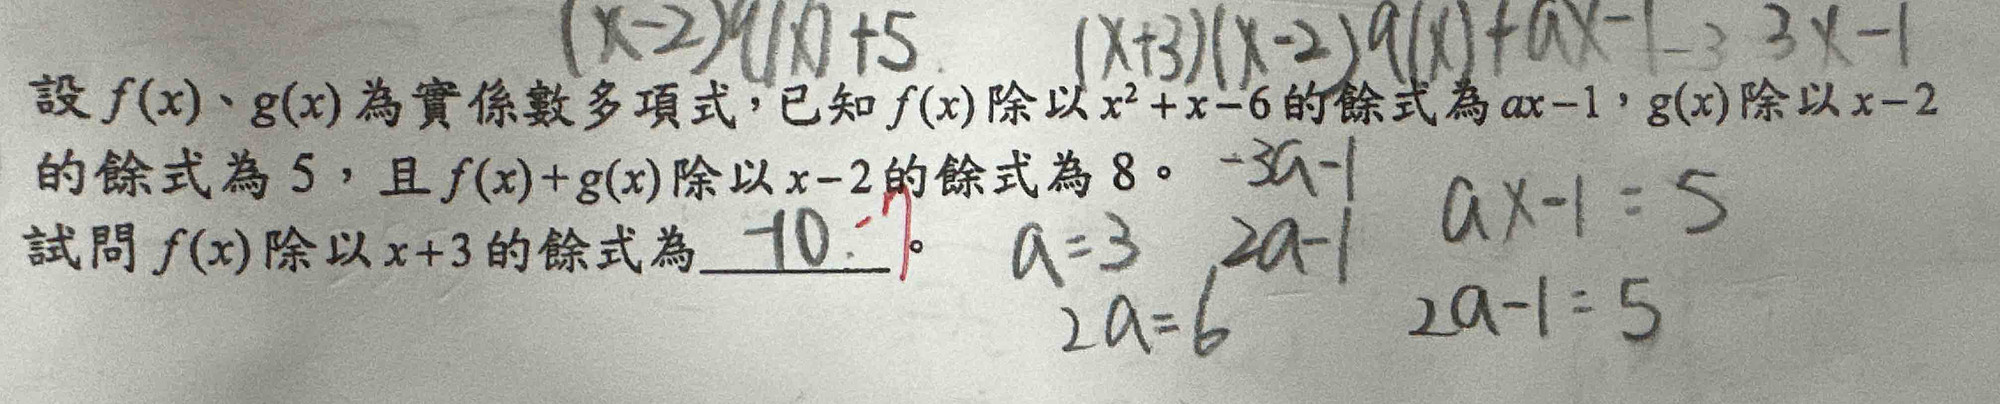 (x-2)q(x)+5 (x+3)(x-2)q(x)+ax-1 -3 3x-1
設 f(x)、g(x) 為實係數多項式，已知 f(x) 除以 x²+x-6 的餘式為 ax-1，g(x) 除以 x-2
的餘式為 5，且 f(x)+g(x) 除以 x-2 的餘式為 8。 -3a-1 ax-1=5
試問 f(x) 除以 x+3 的餘式為 -10 。 -7 a=3 2a-1
2a=6 2a-1=5